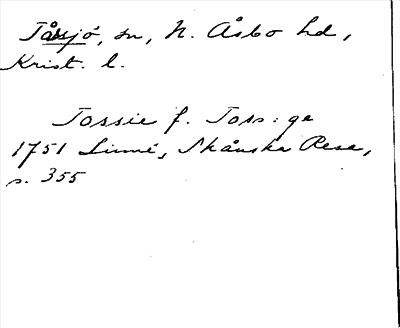 Tåssjö, sn, N. Åsbo hd,
Krist. l.
Tossie f. Toss:ge
1751 Linné, Skånska Resa,
s. 355